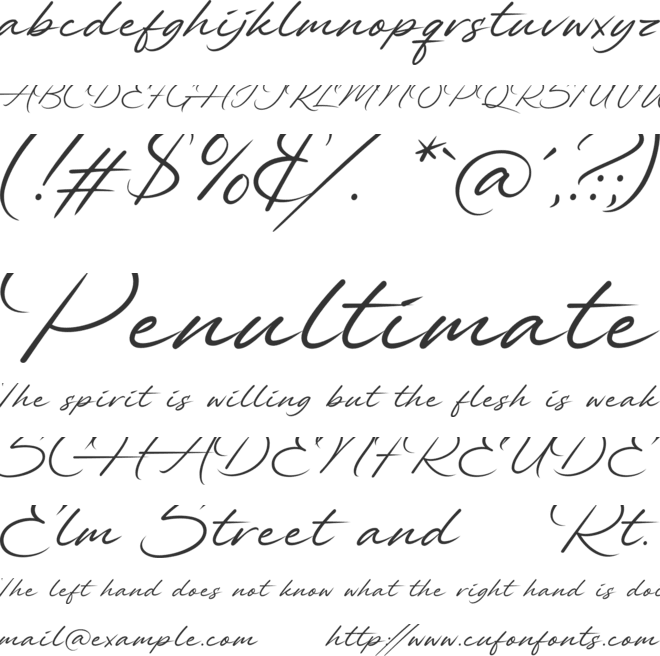 abcdefghijklmnopqrstuvwxyz
ABCDEFGHIJKLMNOPQRSTUVW
(!#$%&/. *`@´,?:;)
Penultimate
The spirit is willing but the flesh is weak
SCHADENFREUDE
Elm Street and Rt.
The left hand does not know what the right hand is doi
mail@example.com http://www.cufonfonts.com